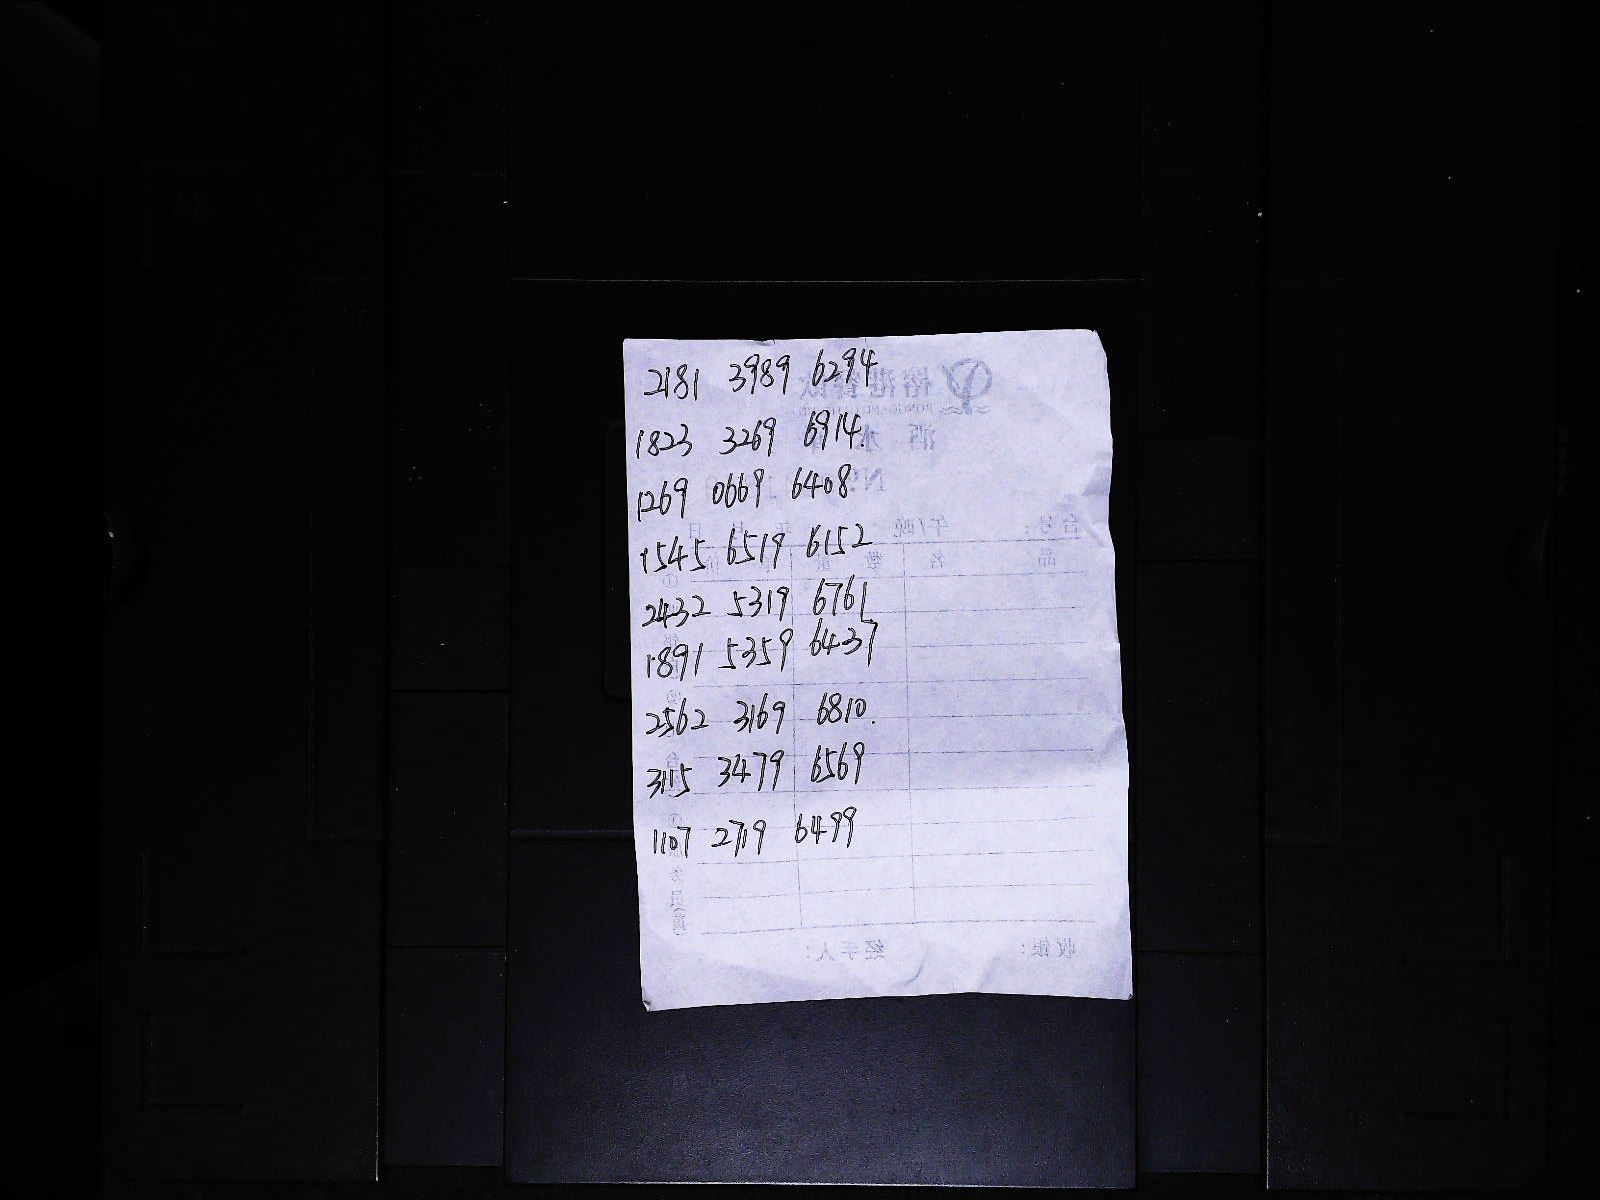 2181 3989 6294
1823 3269 6914.
1269 0669 6408
1545 6519 6152
2432 5319 6761
1891 5359 6437
2562 3169 6810.
3115 3479 6569
1107 2719 6499
酒水
台号: 午/晚
品名 数量
收银: 经手人: